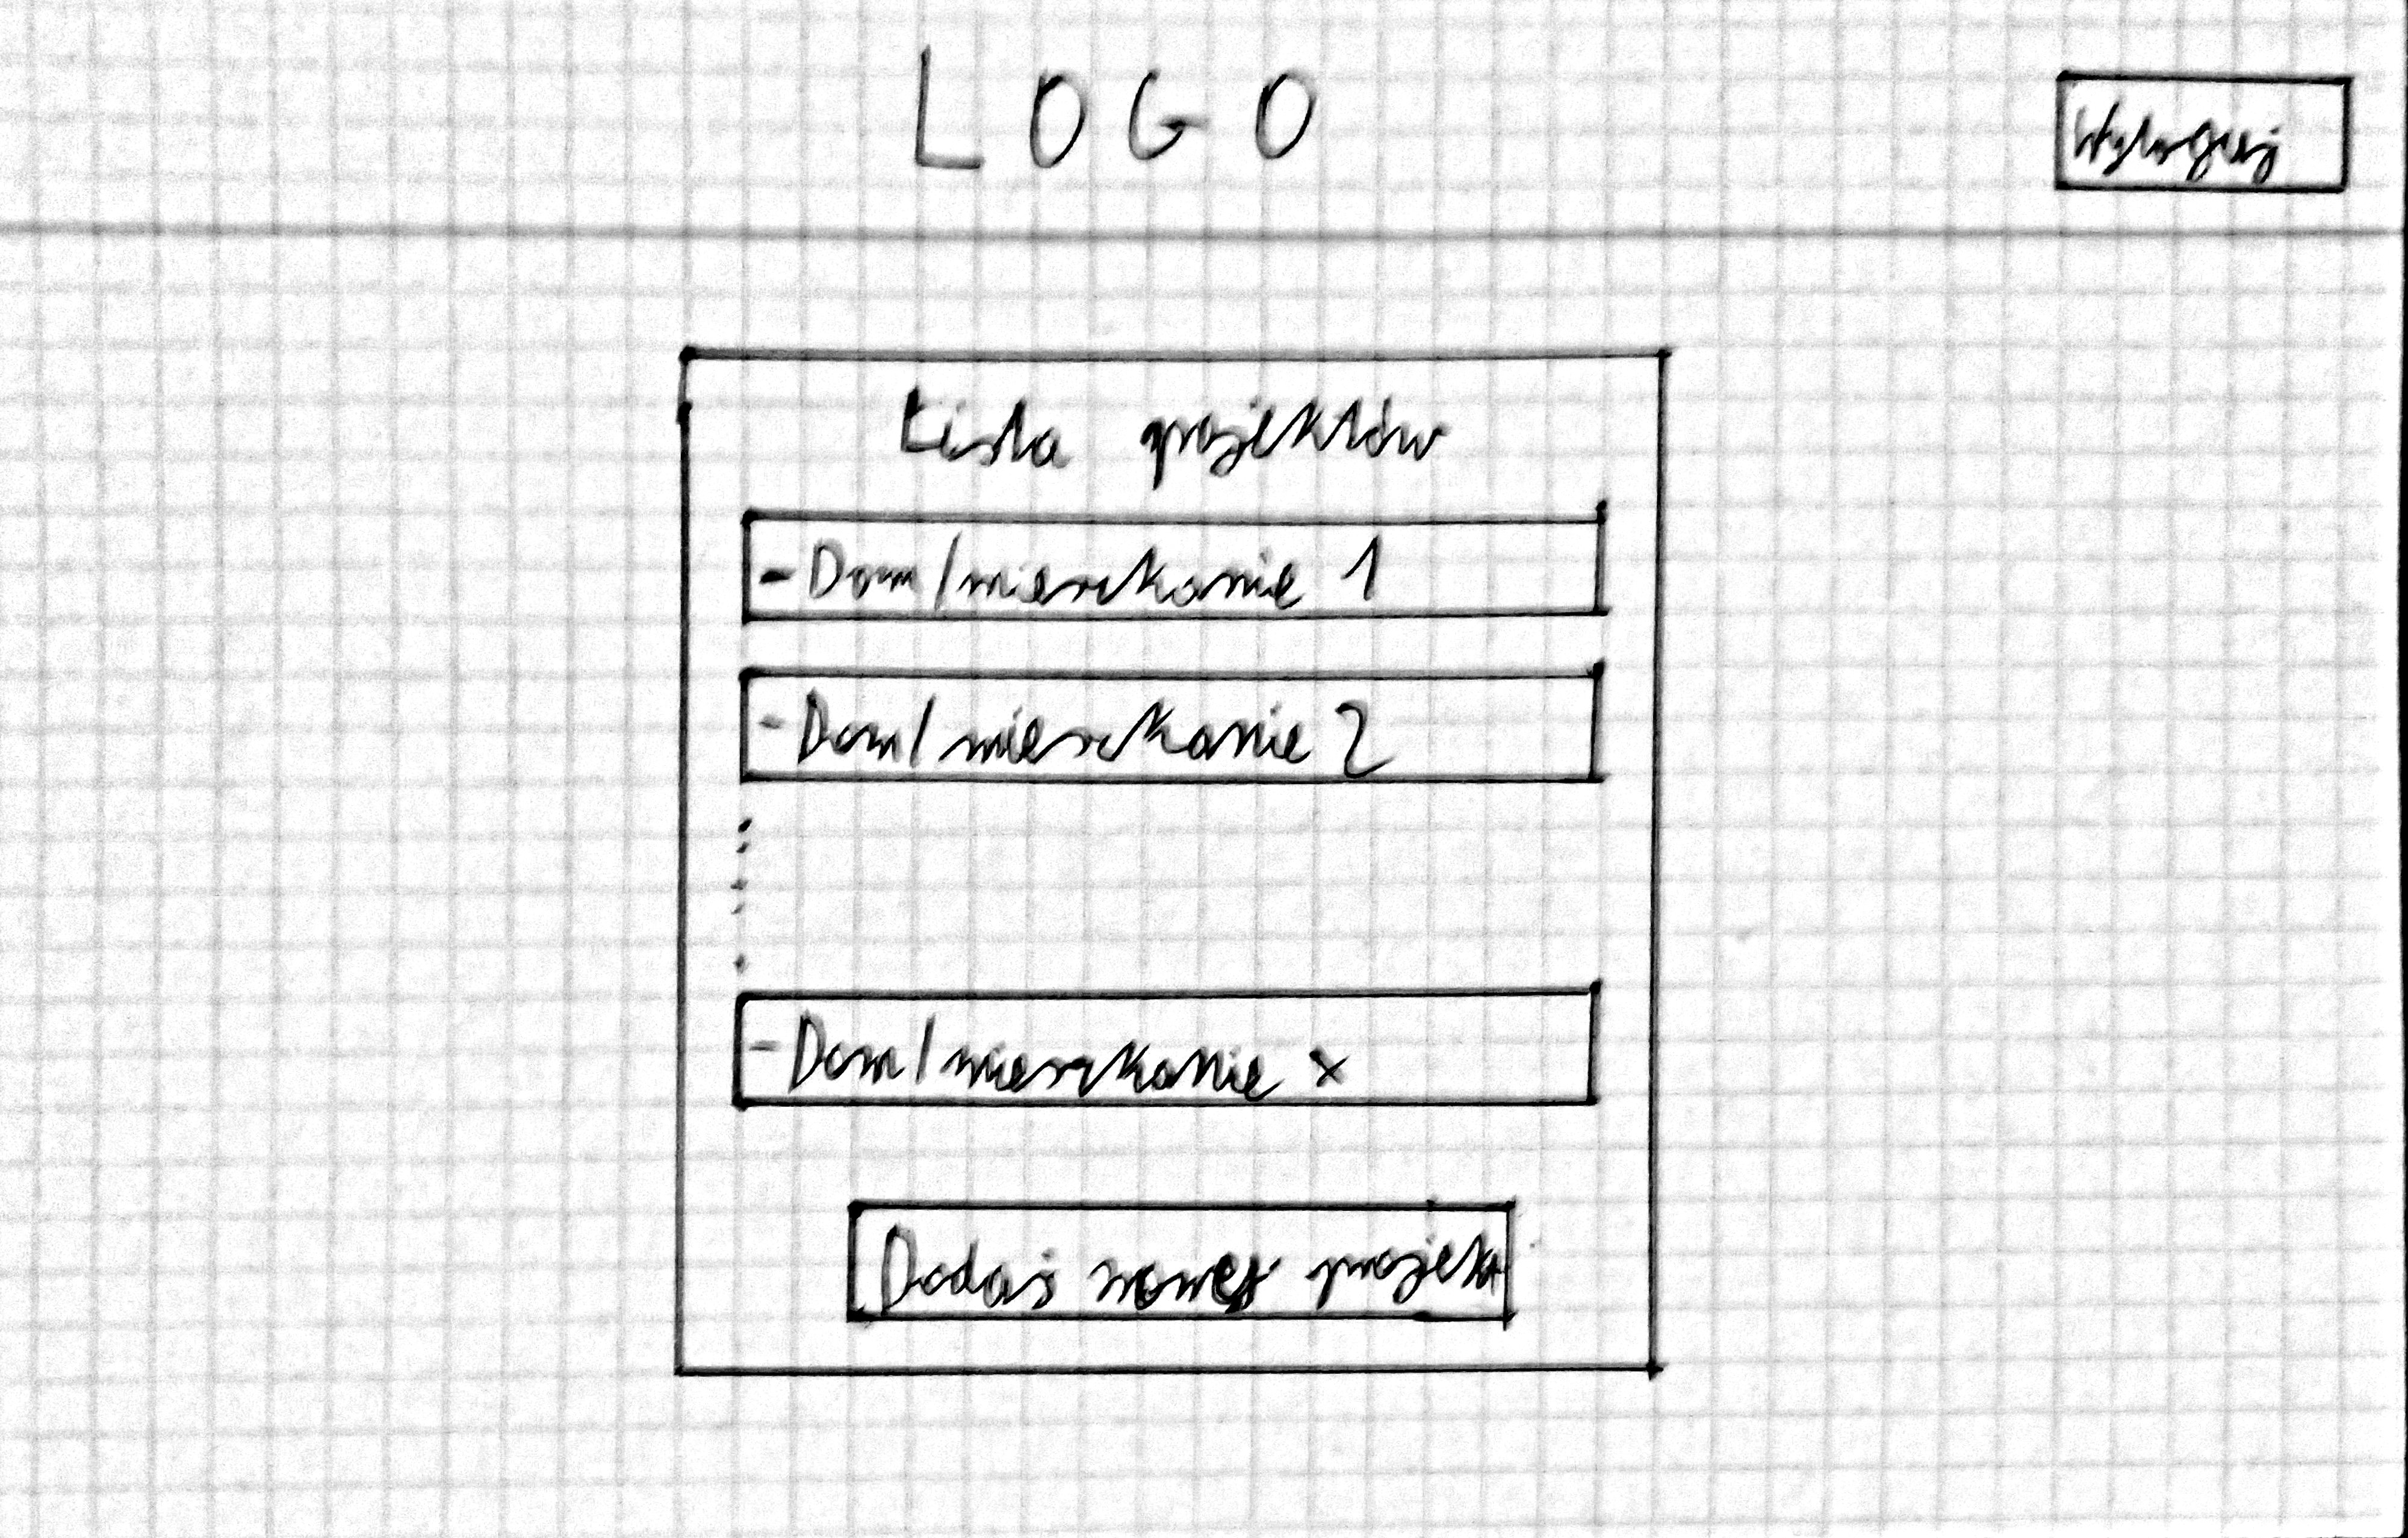 LOGO
Wyloguj
Lista projektów
- Dom/mieszkanie 1
- Dom/mieszkanie 2
- Dom/mieszkanie x
Dodaj nowy projekt